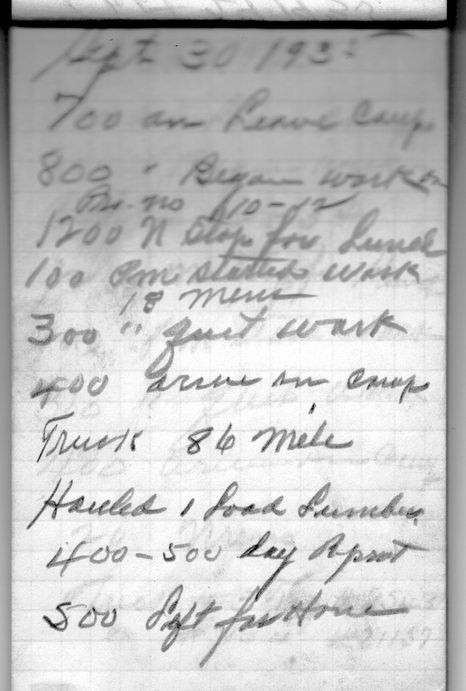 Sept 30 193
700 am Leave Camp
800 " Began work on
Pr. no 110-12
1200 N Stop for Lunch
100 Pm started work
18 men
300 " quit work
400 arive in camp
Truck 86 mile
Hauled 1 Load Lumber
400-500 day Report
500 Left for Home